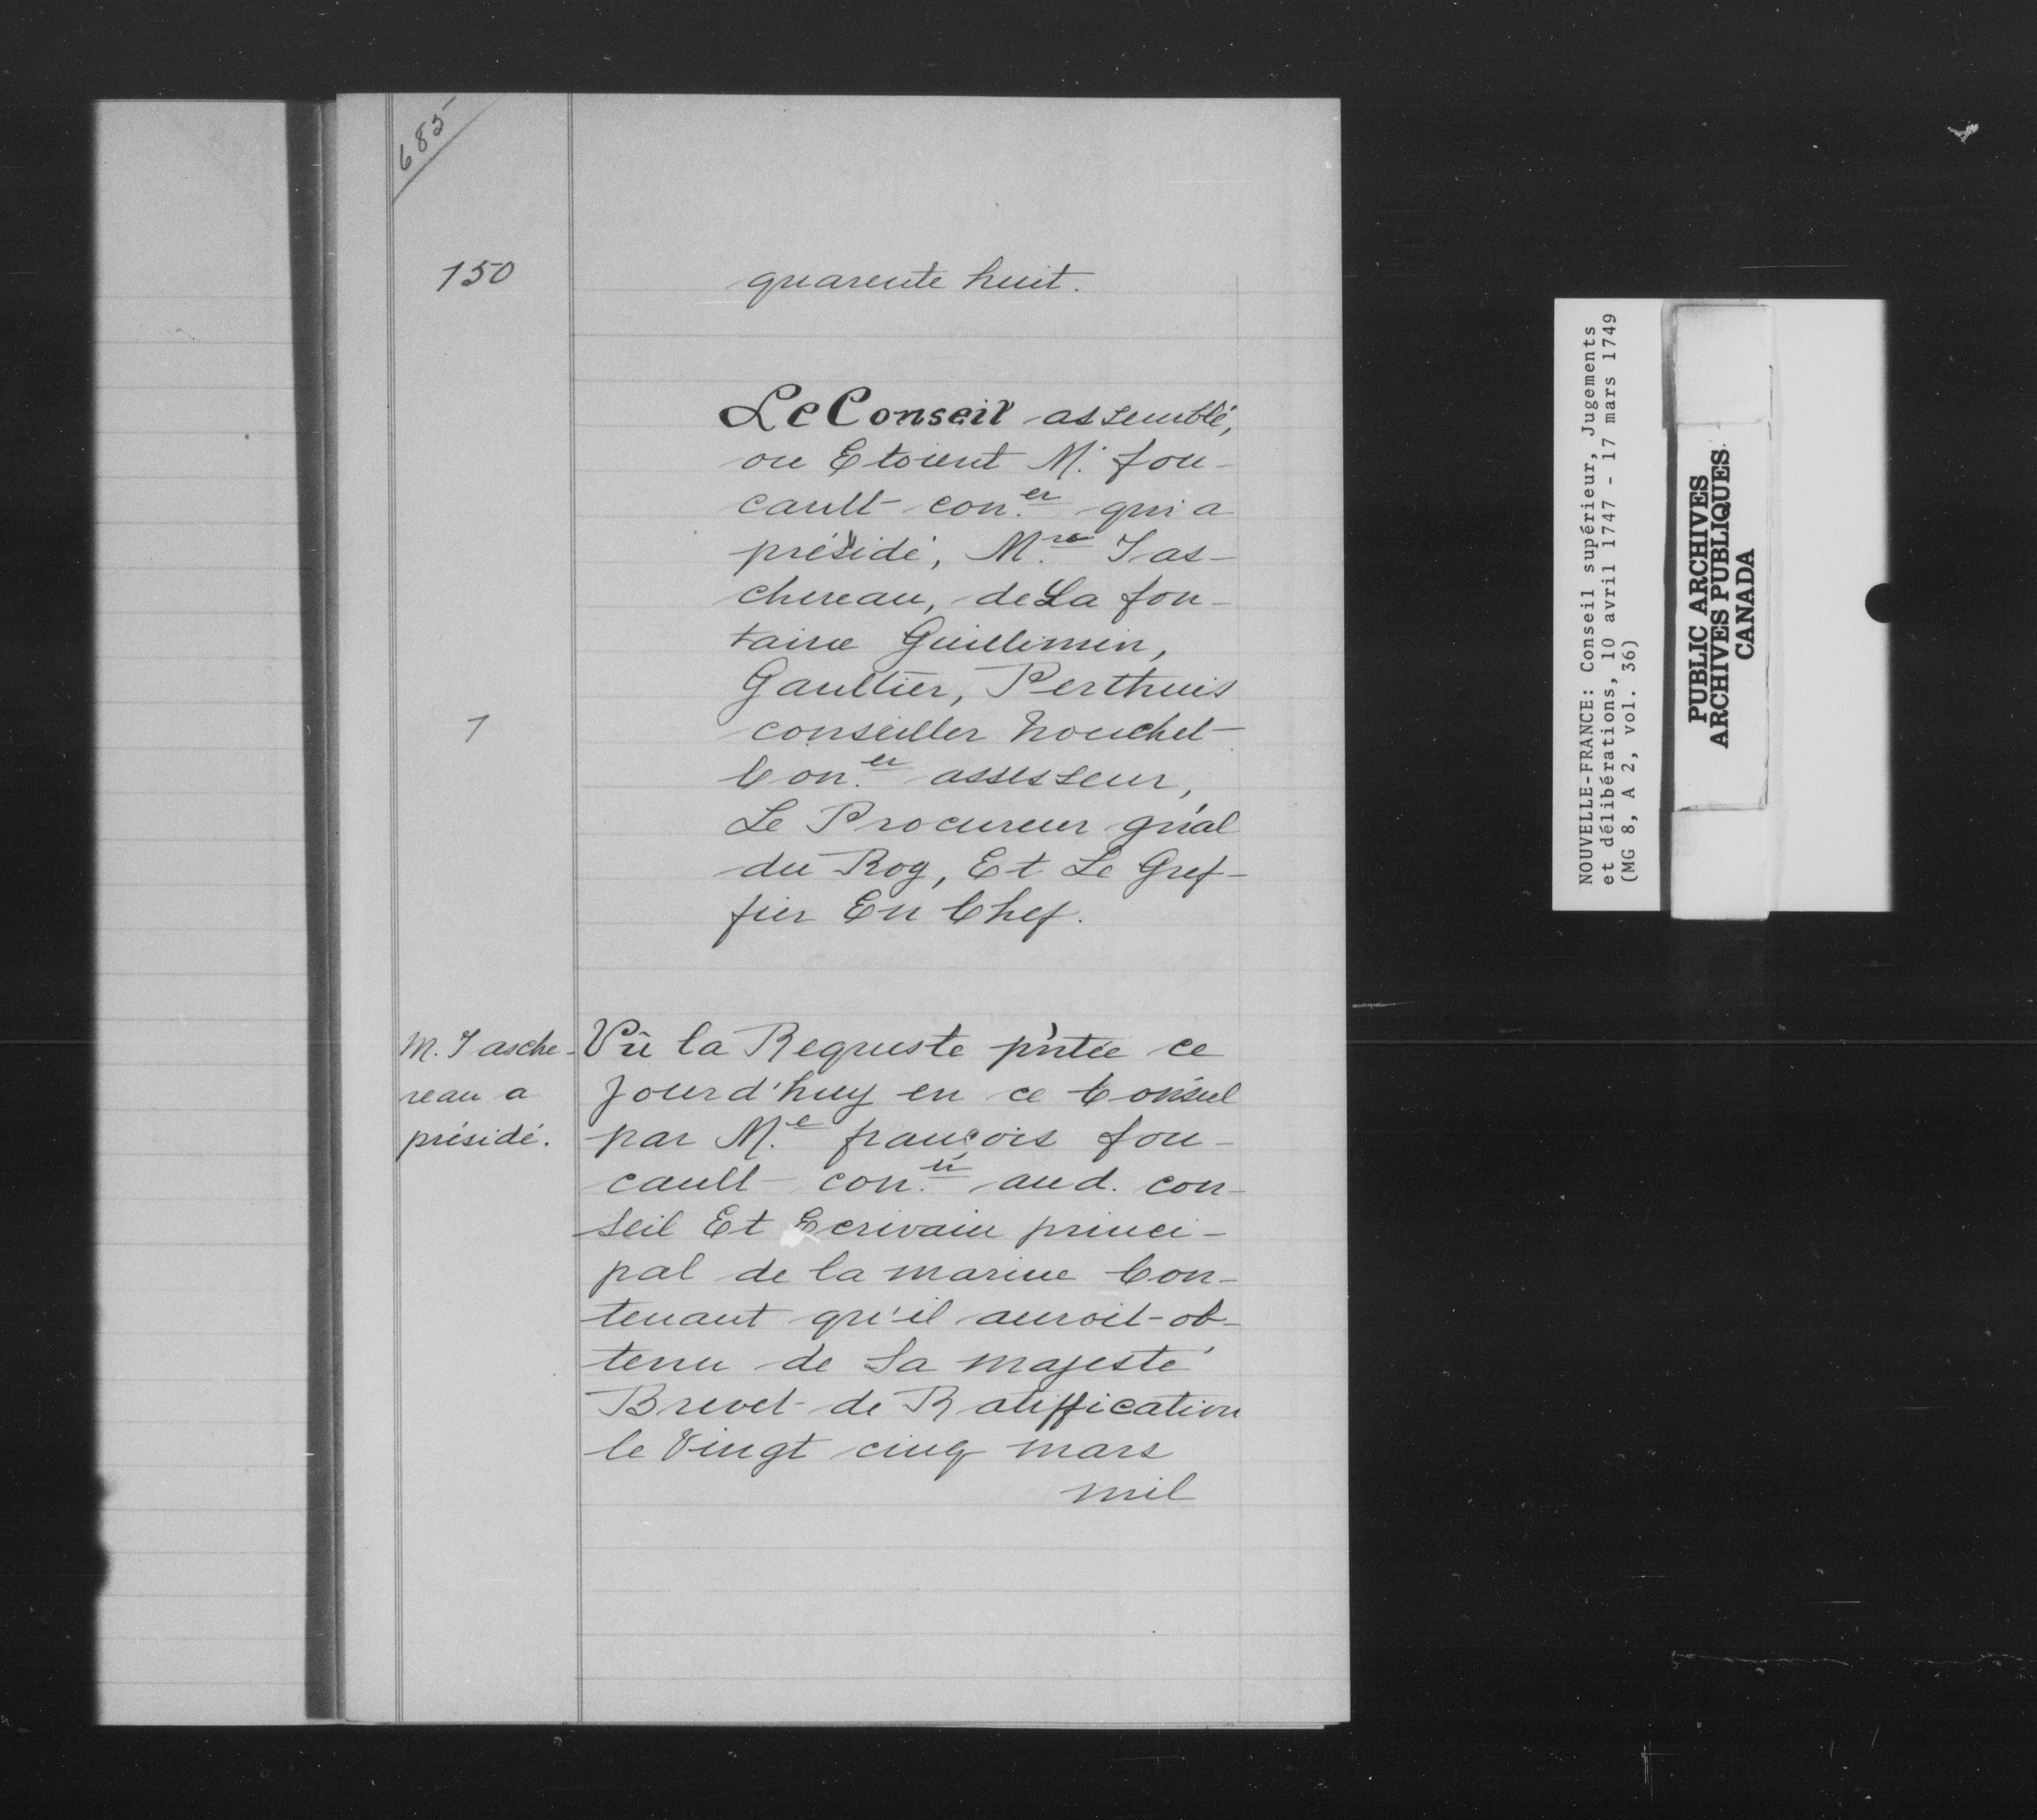 685
150
quarente huit.
Le Conseil assemblé,
ou Etoient M. fou-
cault con.er qui a
présidé, M.rs Tas-
chereau, de La fon-
taine Guillimin,
Gaultier, Perthuis
1
conseiller Nouchet
Con.er assesseur,
Le Procureur gńal
du Roy, Et Le Gref-
fier En Chef.
M. Tasche-
reau a
présidé.
Vû la Requeste p'ntée ce
Jourd'huy en ce Conseil
par M.e françois fou-
cault con.er aud. con-
seil Et Ecrivain princi-
pal de la marine Con-
tenant qu'il auroit ob-
tenu de Sa majesté
Brevet de Ratiffication
le Vingt cinq mars
mil
NOUVELLE-FRANCE: Conseil supérieur, Jugements
et délibérations, 10 avril 1747 - 17 mars 1749
(MG 8, A 2, vol. 36)
PUBLIC ARCHIVES
ARCHIVES PUBLIQUES
CANADA